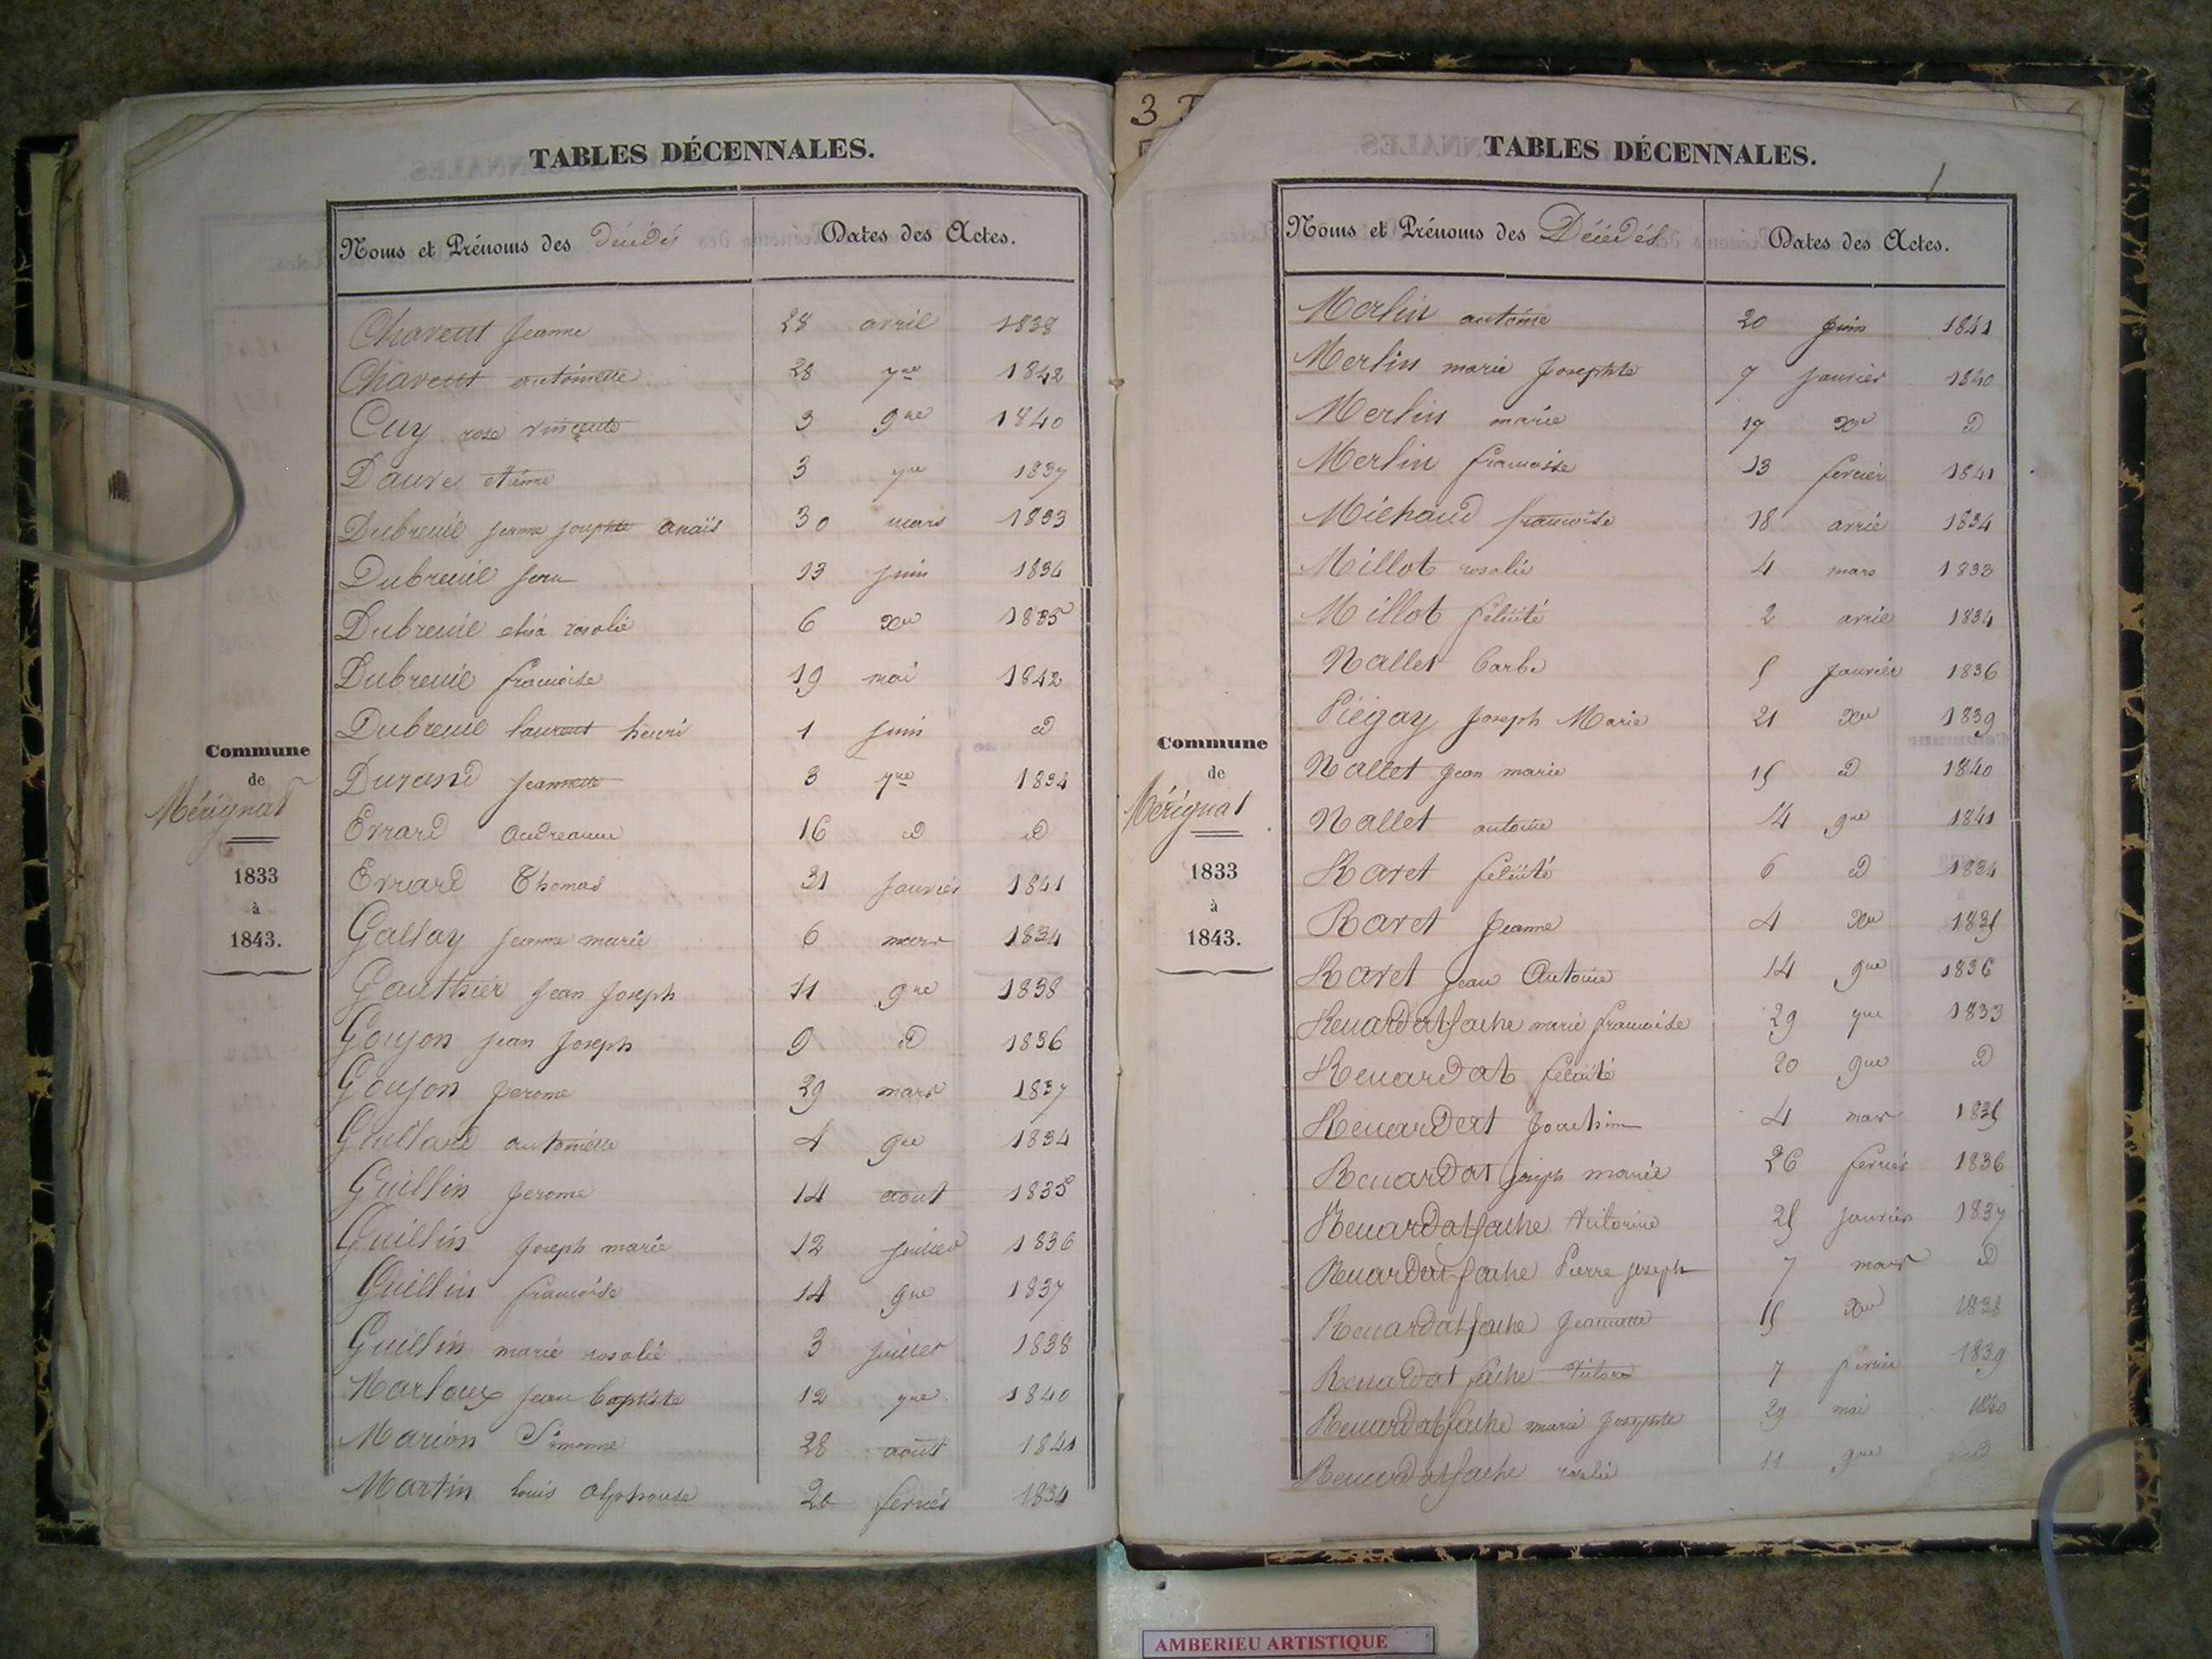 TABLES DÉCENNALES.
Noms et Prénoms des Décédés Dates des Actes.
Chavent Jeanne 28 avril 1838
Chavent antoinette 28 7re 1842
Cuy rose vincente 3 9re 1840
Dauvre etienne 3 7re 1837
Dubreuil jeanne josephte anaïs 30 mars 1833
Dubreuil jean 13 juin 1834
Dubreuil elisa rosalie 6 Xre 1835
Dubreuil francoise 19 mai 1842
Dubreuil laurent henri 1 juin d
Durand jeannette 3 7re 1834
Evrard 16 d d
Evrard Thomas 31 janvier 1841
Gallay jeanne marie 6 mars 1834
Gauthier jean joseph 11 9re 1838
Goujon jean joseph 9 d 1836
Goujon jerome 29 mars 1837
Guillard antoinette 4 9re 1834
Guillin jerome 14 aout 1835
Guillin joseph marie 12 juillet 1836
Guillin francoise 14 9re 1837
Guillin marie rosalie 3 juillet 1838
Marloux jean baptiste 12 7re 1840
Marion Simonne 28 août 1841
Martin louis alphonse 20 fevrier 1834
Commune
de
Mérignat
1833
à
1843.
3
TABLES DÉCENNALES.
1
Noms et Prénoms des Décédés Dates des Actes.
Merlin antoine 20 juin 1841
Merlin marie Josephte 7 janvier 1840
Merlin marie 17 Xre d
Merlin francoise 13 fevrier 1841
Michaud francoise 18 avril 1834
Millot rosalie 4 mars 1833
Millot félicité 2 avril 1834
Nallet barbe 5 janvier 1836
Piégay joseph Marie 21 Xre 1839
Nallet jean marie 15 d 1840
Nallet antoine 14 9re 1841
Ravet félicité 6 d 1834
Ravet jeanne 4 Xre 1835
Ravet jean Antoine 14 9re 1836
Renardatfache marie francoise 29 7re 1833
Renardat félicité 20 9re d
Renardat joachim 4 mars 1835
Renardat joseph marie 26 fevrier 1836
Renardatfache victorine 25 janvier 1837
Renardatfache Pierre joseph 7 mars d
Renardatfache jeannette 15 Xre 1838
Renardat fache 7 fevrier 1839
Renardatfache marie josephte 29 mai 1840
Renardatfache rosalie 11 9re d
Commune
de
Mérignat
1833
à
1843.
AMBERIEU ARTISTIQUE